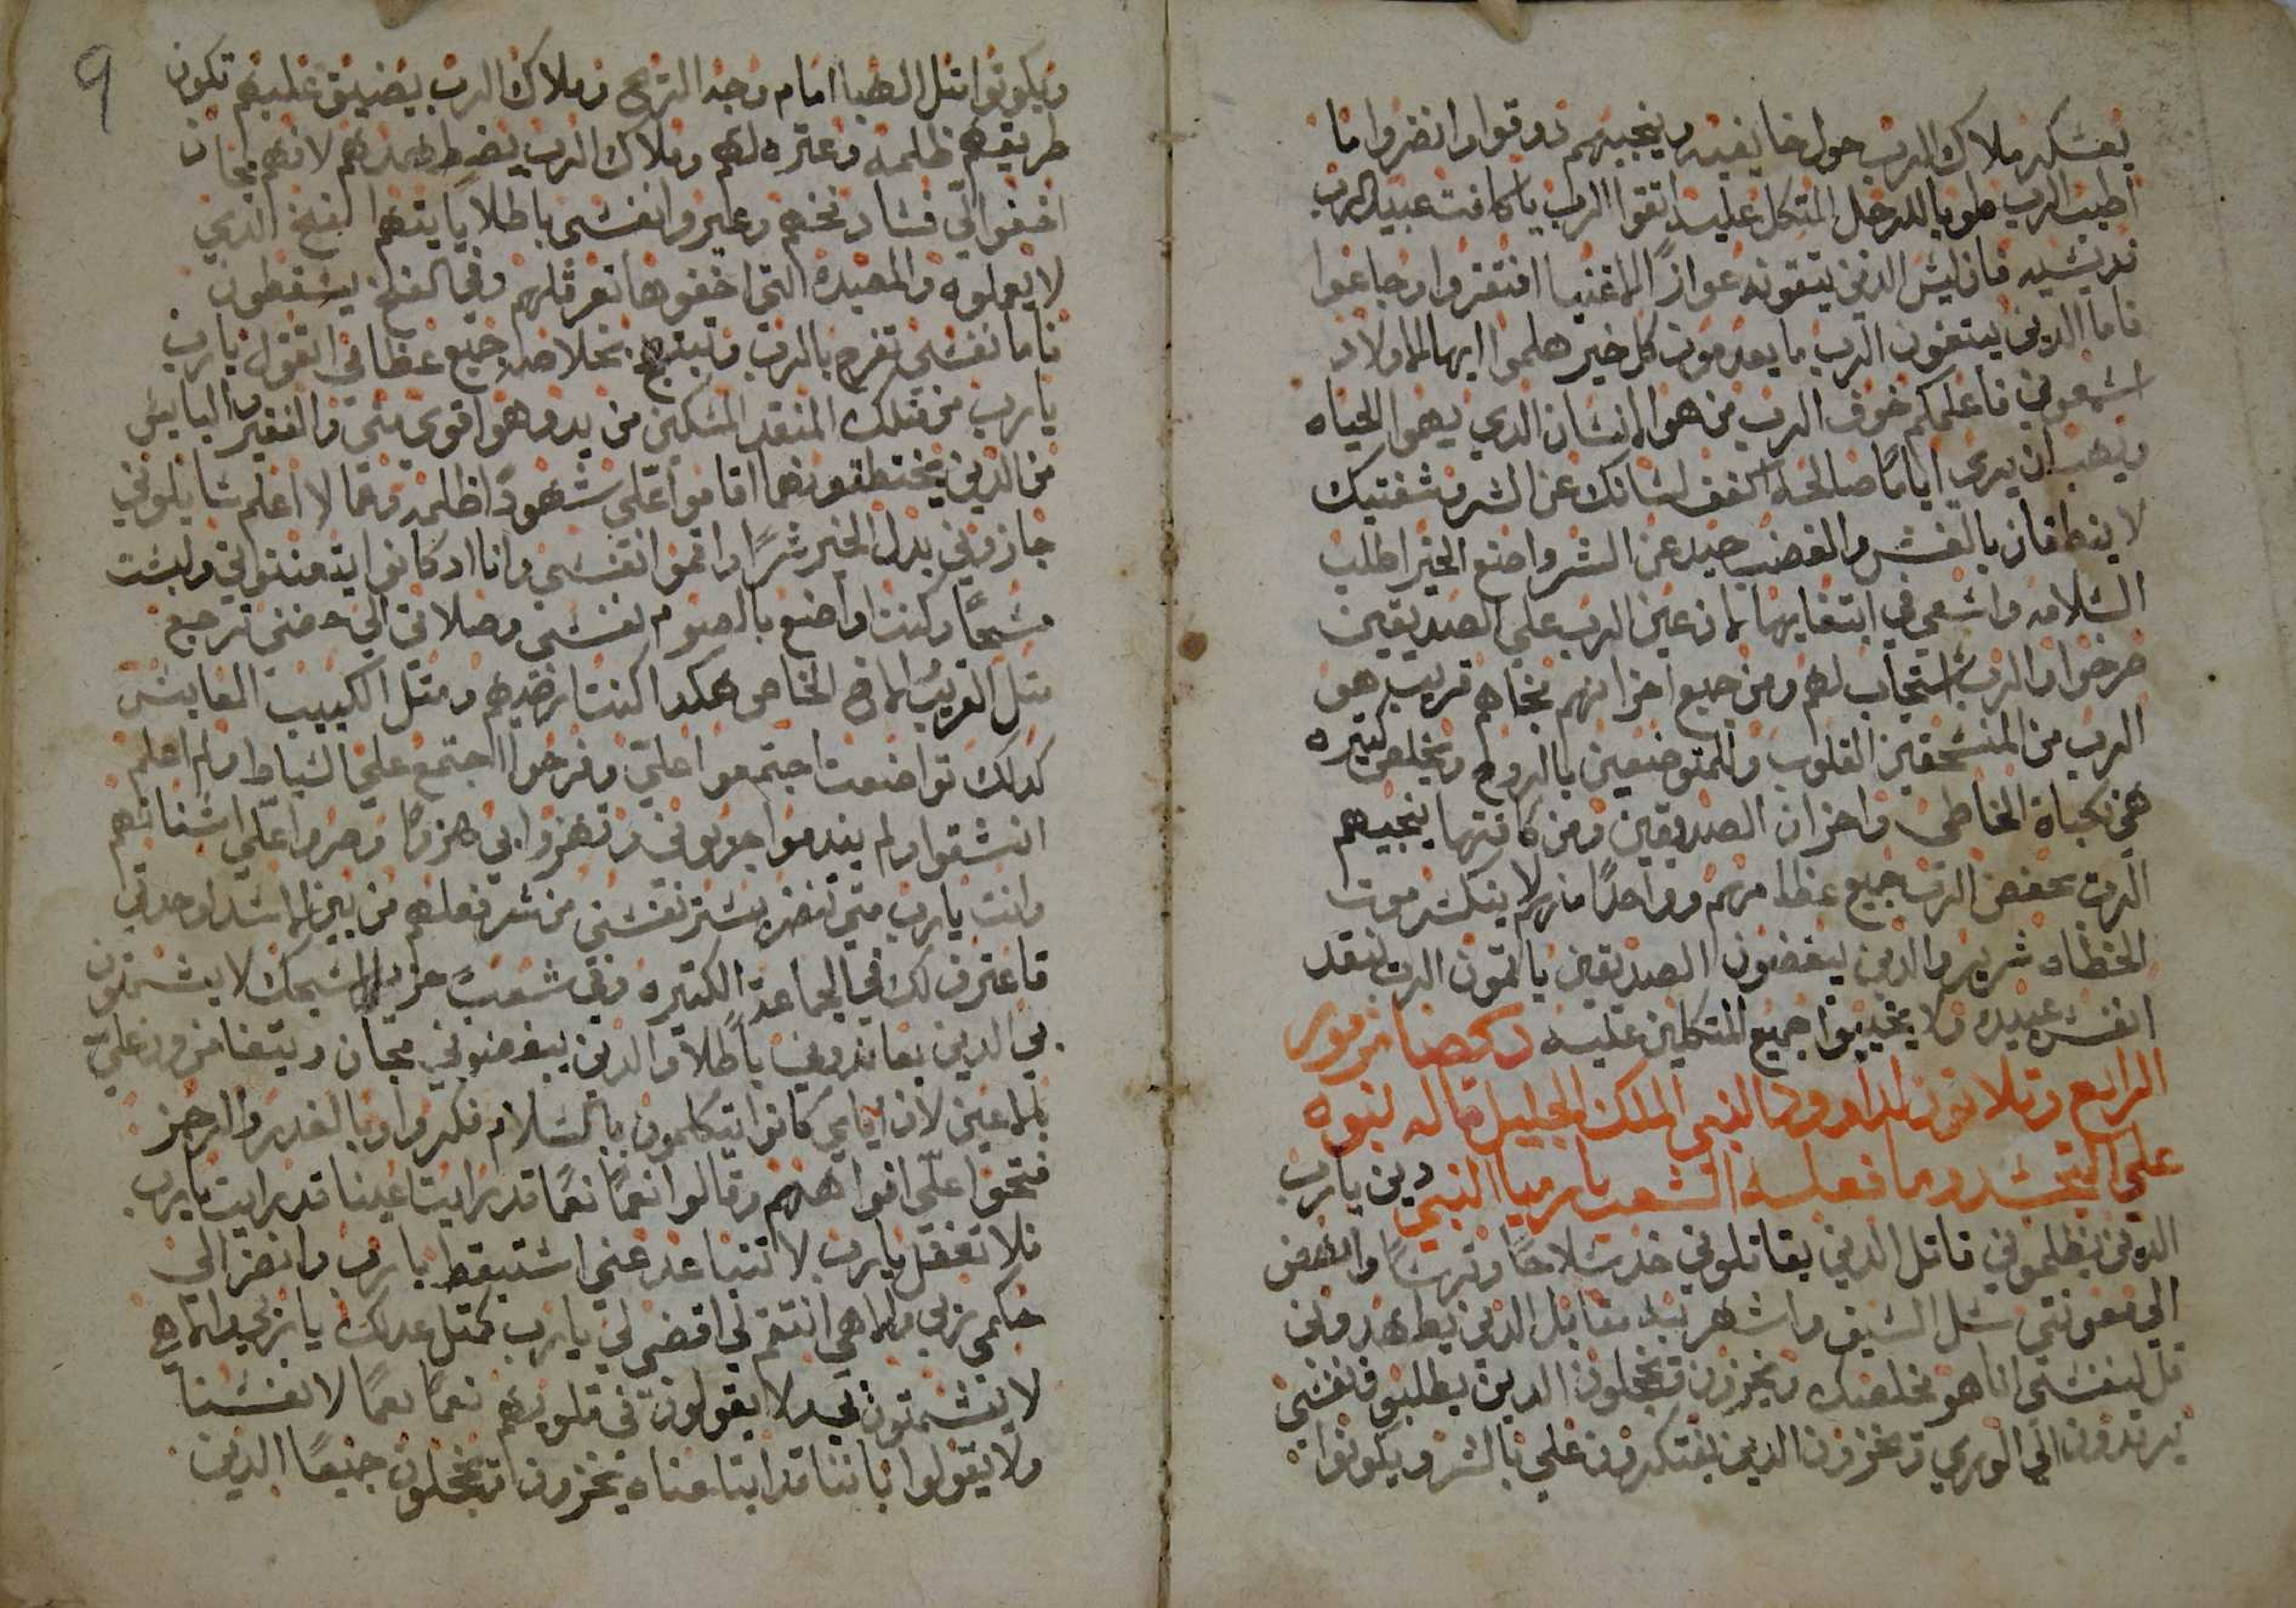 يعسكر ملاك الرب حول خايفيه وينجيهم دوقوا وانضروا ما
اطيب الرب طوبا للرجل المتكل عليه اتقوا الرب ياكافت عبيد الرب
قديسيه فان ليس الدين يتقونه عواز الاغنيا افتقروا وجاعوا
فاما الدين يبتغون الرب ما يعدمون كل خير هلموا ايها الاولاد
اسمعوني فاعلمكم خوف الرب من هو الانسان الدي يهوا الحياه
ويحب ان يري اياما صالحه اكفف لسانك عن الشر وشفتيك
لا ينطقان بالغش والغضب حيد عن الشر واصنع الخير اطلب
السلامه واسعي في ابتغايها لان عين الرب علي الصديقين
صرخوا والرب استجاب لهم ومن جميع احزانهم نجاهم قريب هو
الرب من المنسحقين القلوب والمتوضعين بالروح ويخلص كتيره
هي نجاة الخاطي واحزان الصديقين ومن كافتها ينجيهم
الرب يحفض الرب جميع عظامهم وواحدا منهم لا ينكسر موت
الخطاه شرير والدين يبغضون الصديقين ياتمون الرب ينقد
انفس عبيده ولا يخيبوا جميع المتكلين عليه مزمور
الرابع وتلاتون لداوود النبي الملك الجليل قاله نبوه
علي التجسد وما فعله الشعب بارميا النبي دين يارب
الدين يظلموني قاتل الدين يقاتلوني خد سلاحا وترسا وانهض
الي معونتي سل السيف واشهر به مقابل الدين يطاهدوني
قل لنفسي انا هو مخلصك ويخزون ويخجلون الدين يطلبون نفسي
يرتدون الي الوري ويخزون الدين يفتكرون علي بالشر ويكونوا
9
ويكونوا متل الهبا امام وجه الريح وملاك الرب يضيق عليهم تكون
طريقهم ظلمه وعتره لهم وملاك الرب يضطهدهم لانهم مجان
اخفوا لي فساد فخهم وعيروا نفسي باطلا ياتيهم الفخ الدي
لا يعلموه والمصيده التي اخفوها تعرقلهم وفي الفخ يسقطون
فاما نفسي تفرح بالرب وتبتهج بخلاصه جميع عظامي اتقول يارب
يارب من متلك المنقد المسكين من يد وهو اقوي مني والفقير البايس
من الدين يختطفونهما اقاموا علي شهودا ظلمه وعما لا اعلم سايلوني
جازوني بدل الخير شرا واقموا نفسي وانا اد كانوا يتعنتوني ولبست
مسحا وكنت اواضع بالصوم نفسي وصلاتي الي حضني ترجع
متل القريب الاخ الخاص هكدا كنت ارضيهم ومتل الكييب العابس
كدلك تواضعت اجتمعوا علي وفرحوا اجتمع علي السياط ولم اعلم
انشقوا ولم يندموا جربوني وتهزوا بي هزوا وصروا علي اسنانهم
وانت يارب متي تنضر يستر نفسي من شر فعلهم من بين الاسد اوحدتي
فاعترف لك في الجماعة الكتيره وفي شعب عزيز اسبحك لا يشمتون
بي الدين يعاندوني باطلا والدين يبغضوني مجان ويتغامزون علي
بالاعين لان اياي كانوا يتكلمون بالسلام فكروا وبالغدر والرجز
فتحوا علي افواههم وقالوا نعما نعما قد رايت اعيننا قد رايت يارب
فلا تغفل يارب لا تتباعد عني استيقظ يارب وانضر الي
حكمي ربي والاهي انتقم لي اقضي لي يارب كمتل عدلك يا ربي والاهي
لا يشمتون بي ولا يقولون في قلوبهم نعما نعما لانفسنا
ولا يقولوا باننا قد ابتلعناه يخزون ويخجلون جميعا الدين